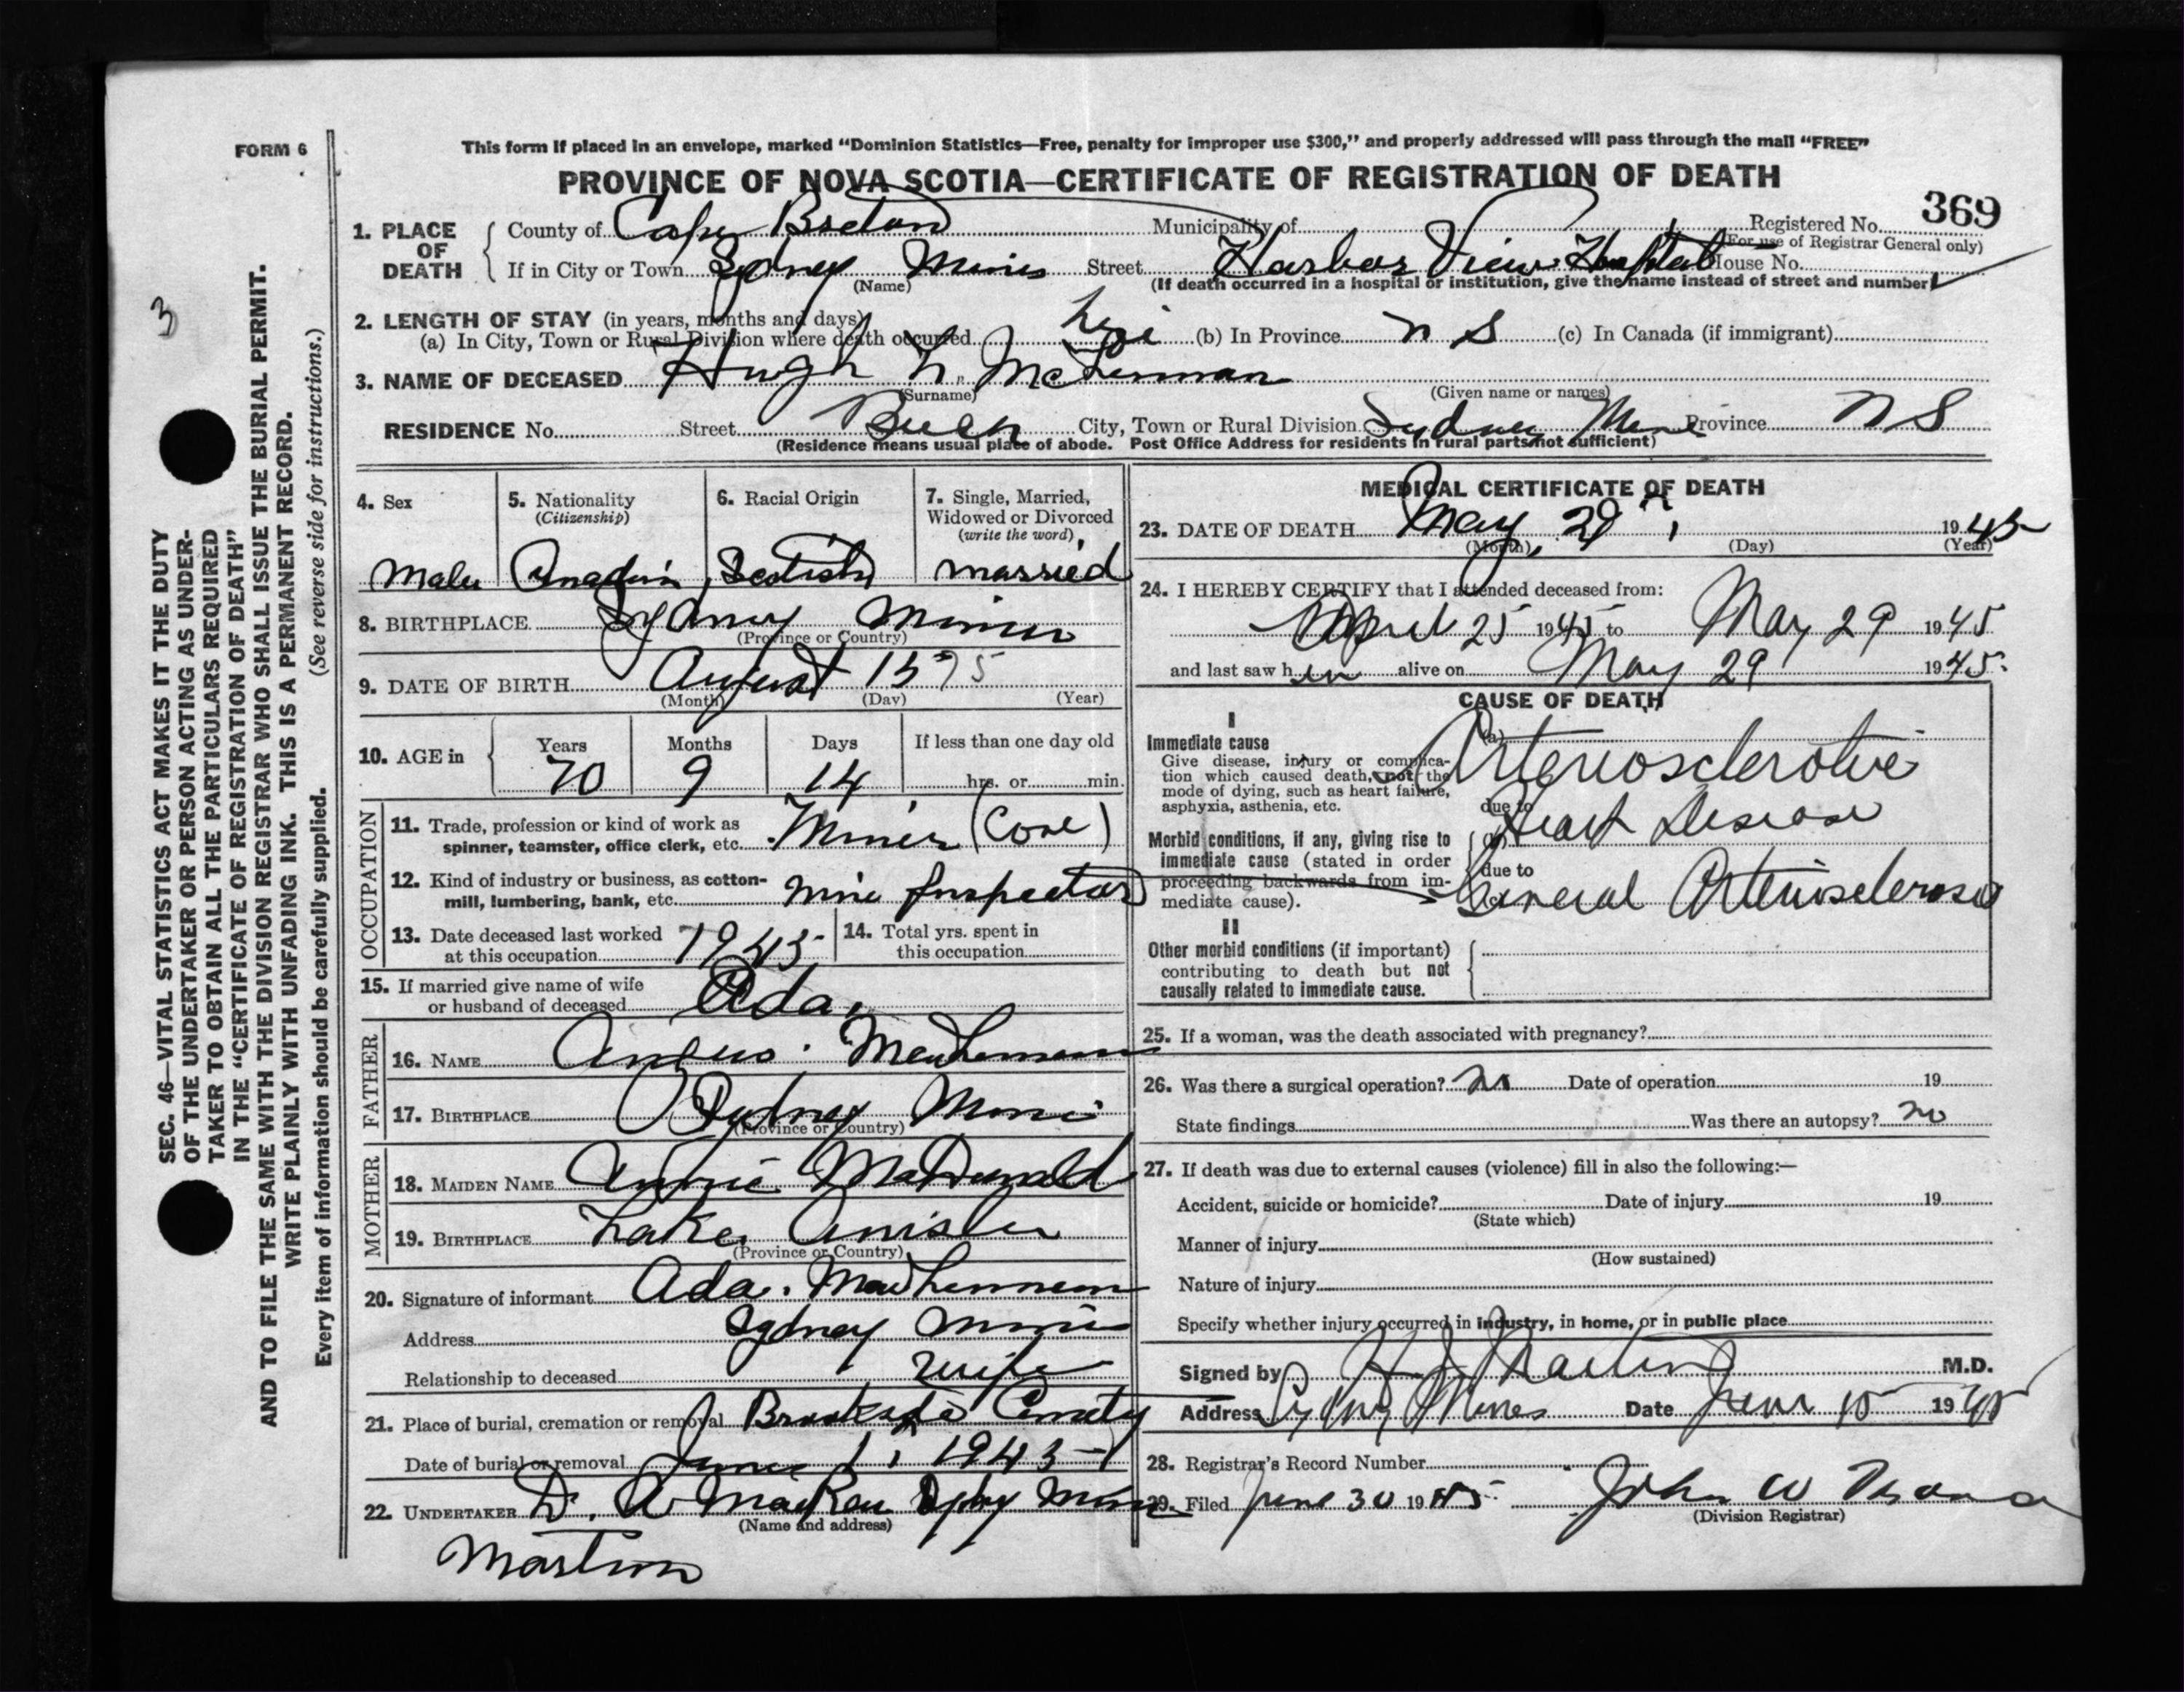 FORM 6
This form if placed in an envelope, marked “Dominion Statistics—Free, penalty for improper use $300,” and properly addressed will pass through the mail “FREE”
PROVINCE OF NOVA SCOTIA—CERTIFICATE OF REGISTRATION OF DEATH
369
1. PLACE OF DEATH County of Cape Breton Municipality of Registered No.
(For use of Registrar General only)
If in City or Town Sydney Mines Street Harbor View Hospital House No.
(Name) (If death occurred in a hospital or institution, give the name instead of street and number)
2. LENGTH OF STAY (in years, months and days)
(a) In City, Town or Rural Division where death occurred (b) In Province N S (c) In Canada (if immigrant)
3. NAME OF DECEASED Hugh
(Surname) (Given name or names)
RESIDENCE No. Street City, Town or Rural Division Sydney Mines Province N S
(Residence means usual place of abode. Post Office Address for residents in rural parts not sufficient)
4. Sex 5. Nationality 6. Racial Origin 7. Single, Married,
(Citizenship) Widowed or Divorced
(write the word)
Male Canadian Scotish married
8. BIRTHPLACE Sydney Mines
(Province or Country)
9. DATE OF BIRTH August 15 75
(Month) (Day) (Year)
10. AGE in Years Months Days If less than one day old
70 9 14 hrs. or min.
OCCUPATION
11. Trade, profession or kind of work as
spinner, teamster, office clerk, etc. Miner
12. Kind of industry or business, as cotton-
mill, lumbering, bank, etc. Mine Inspector
13. Date deceased last worked 14. Total yrs. spent in
at this occupation 1943 this occupation
15. If married give name of wife
or husband of deceased Ada
FATHER
16. NAME Angus
17. BIRTHPLACE Sydney Mines
(Province or Country)
MOTHER
18. MAIDEN NAME Annie McDonald
19. BIRTHPLACE Lake Ainslie
(Province or Country)
20. Signature of informant Ada
Address Sydney Mines
Relationship to deceased Wife
21. Place of burial, cremation or removal Brookside Cemetery
Date of burial or removal June 1, 1945
22. UNDERTAKER D. A MacRae Sydney Mines
(Name and address)
Martin
MEDICAL CERTIFICATE OF DEATH
23. DATE OF DEATH May 29 1945
(Month) (Day) (Year)
24. I HEREBY CERTIFY that I attended deceased from:
April 25 1945 to May 29 1945
and last saw him alive on May 29 1945
CAUSE OF DEATH
I
Immediate cause (a) Arteriosclerotic
Give disease, injury or complica-
tion which caused death, not the
mode of dying, such as heart failure,
asphyxia, asthenia, etc.
due to
Heart Disease
Morbid conditions, if any, giving rise to
immediate cause (stated in order
proceeding backwards from im-
mediate cause).
due to
General Arteriosclerosis
II
Other morbid conditions (if important)
contributing to death but not
causally related to immediate cause.
25. If a woman, was the death associated with pregnancy?
26. Was there a surgical operation? no Date of operation 19
State findings Was there an autopsy? no
27. If death was due to external causes (violence) fill in also the following:—
Accident, suicide or homicide? Date of injury 19
(State which)
Manner of injury
(How sustained)
Nature of injury
Specify whether injury occurred in industry, in home, or in public place
Signed by Martin M.D.
Address Sydney Mines Date June 1945
28. Registrar's Record Number
29. Filed June 30 1945 John W
(Division Registrar)
3
SEC. 46—VITAL STATISTICS ACT MAKES IT THE DUTY
OF THE UNDERTAKER OR PERSON ACTING AS UNDER-
TAKER TO OBTAIN ALL THE PARTICULARS REQUIRED
IN THE “CERTIFICATE OF REGISTRATION OF DEATH”
AND TO FILE THE SAME WITH THE DIVISION REGISTRAR WHO SHALL ISSUE THE BURIAL PERMIT.
WRITE PLAINLY WITH UNFADING INK. THIS IS A PERMANENT RECORD.
Every item of information should be carefully supplied. (See reverse side for instructions.)